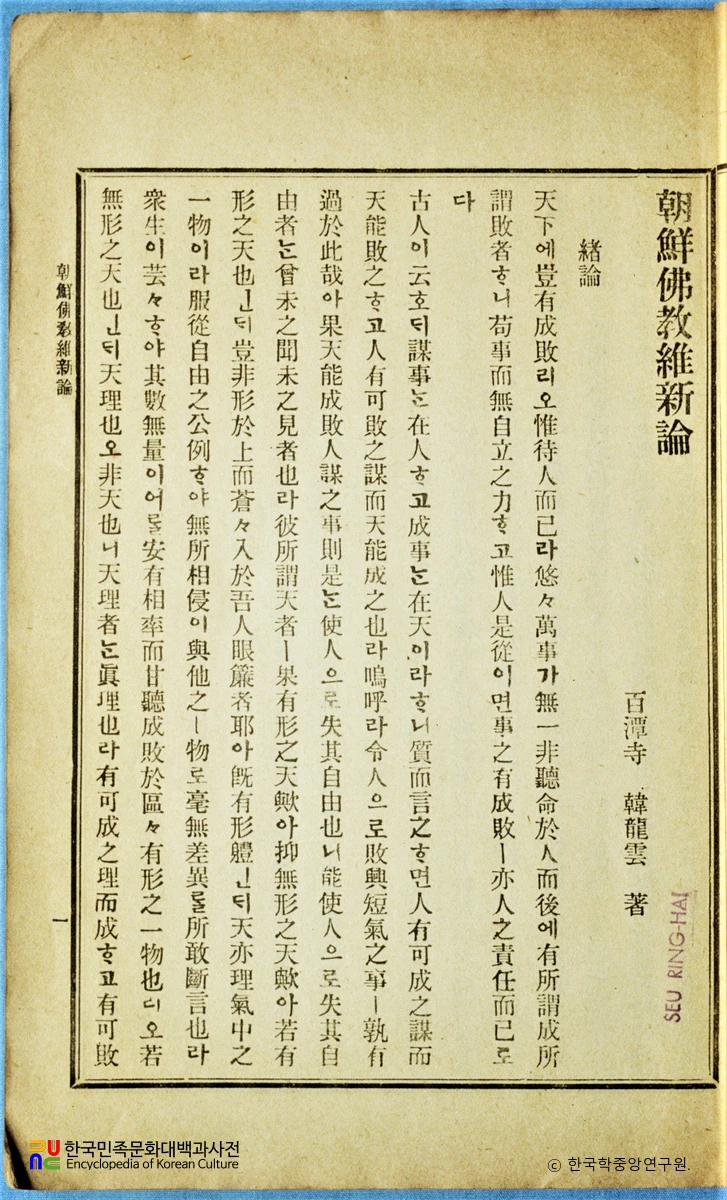 朝鮮佛教維新論
百潭寺 韓龍雲 著
緖論
天下에豈有成敗리오惟待人而已라悠々萬事가無一非聽命於人而後에有所謂成所
謂敗者ᄒᆞ니苟事而無自立之力ᄒᆞ고惟人是從이면事之有成敗ㅣ亦人之責任而已로
다
古人이云호ᄃᆡ謀事ᄂᆞᆫ在人ᄒᆞ고成事ᄂᆞᆫ在天이라ᄒᆞ니質而言之ᄒᆞ면人有可成之謀而
天能敗之ᄒᆞ고人有可敗之謀而天能成之也라嗚呼라令人으로敗興短氣之事ㅣ孰有
過於此哉아果天能成敗人謀之事則是ᄂᆞᆫ使人으로失其自由也니能使人으로失其自
由者ᄂᆞᆫ曾未之聞未之見者也라彼所謂天者ㅣ果有形之天歟아抑無形之天歟아若有
形之天也ㅣᆫᄃᆡ豈非形於上而蒼々入於吾人眼簾者耶아旣有形軆ㅣᆫᄃᆡ天亦理氣中之
一物이라服從自由之公例ᄒᆞ야無所相侵이與他之ㅣ物로毫無差異ᄅᆞᆯ所敢斷言也라
衆生이芸々ᄒᆞ야其數無量이어ᄂᆞᆯ安有相率而甘聽成敗於區々有形之一物也디오若
無形之天也ㅣᆫᄃᆡ天理也오非天也니天理者ᄂᆞᆫ眞理也라有可成之理而成ᄒᆞ고有可敗
朝鮮佛敎維新論
一
SEU RING-HAI
한국민족문화대백과사전
Encyclopedia of Korean Culture
ⓒ 한국학중앙연구원.